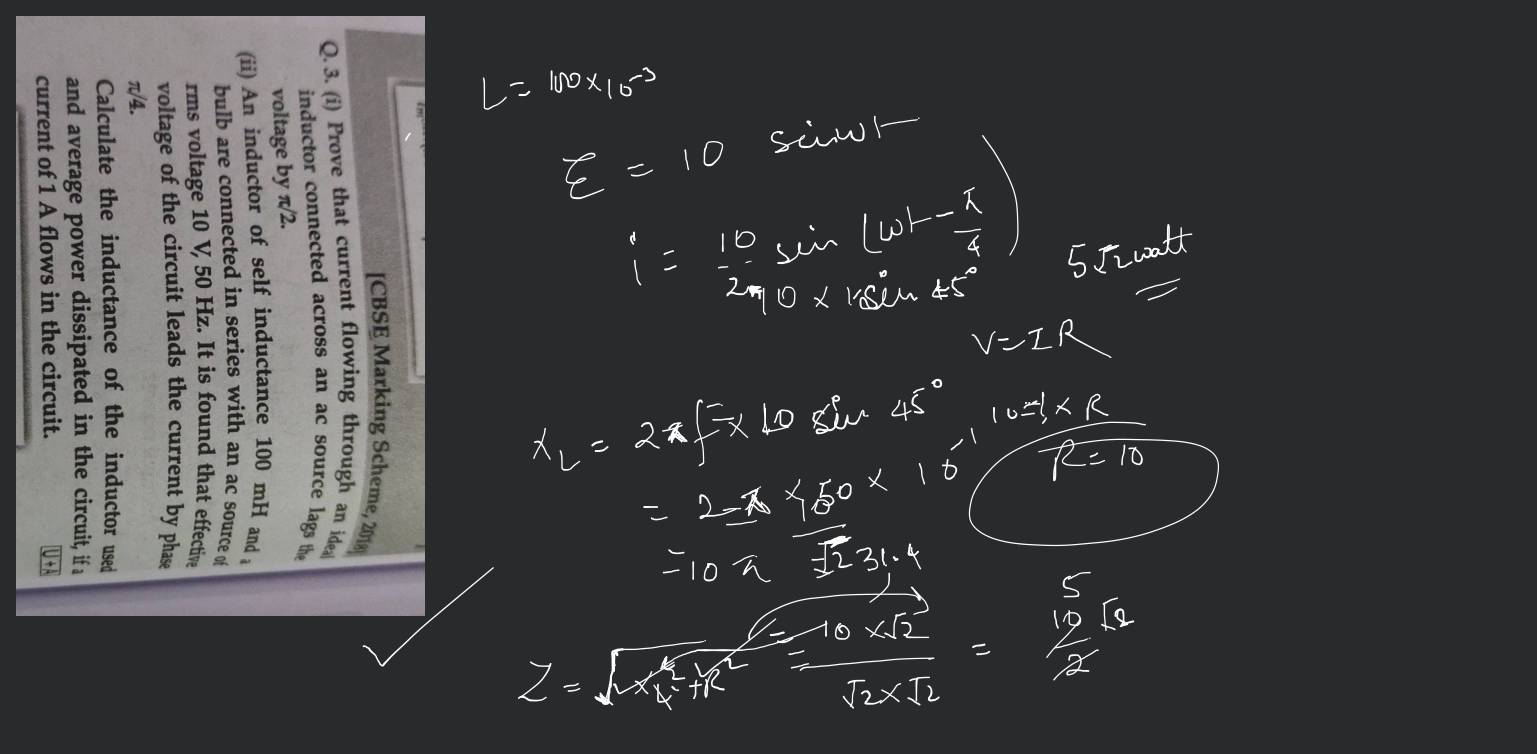 [CBSE Marking Scheme, 2018]
Q. 3. (i) Prove that current flowing through an ideal
inductor connected across an ac source lags the
voltage by π/2.
(ii) An inductor of self inductance 100 mH and a
bulb are connected in series with an ac source of
rms voltage 10 V, 50 Hz. It is found that effective
voltage of the circuit leads the current by phase
π/4.
Calculate the inductance of the inductor used
and average power dissipated in the circuit, if a
current of 1 A flows in the circuit.
U+A
L = 100 × 10⁻³
Ɛ = 10 sin ωt
i = 10 sin (ωt - π/4)
10 × 1 sin 45°
5√2 watt
V = IR
= 10 sin 45°
10 = 1 × R
R = 10
X_L = 2πf ×
= 2 π × 50 × 10⁻¹
= 10 π
31.4
√2
Z = √X_L² + R²
= 10 × √2
√2 × √2
= 10 √2
2
5